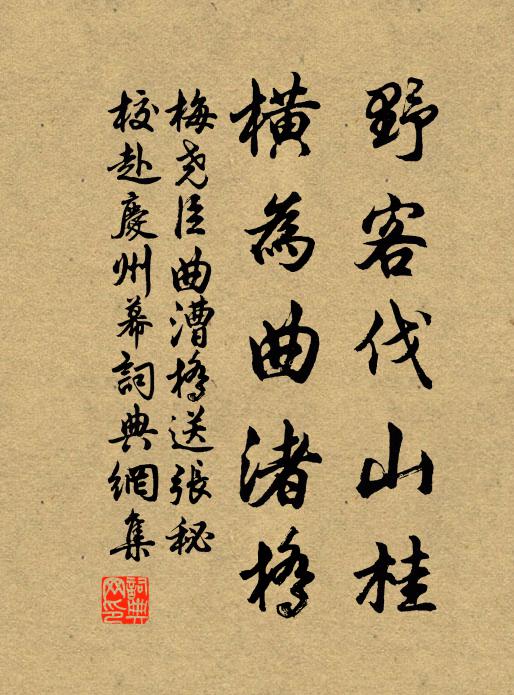 野客伐山桂
橫為曲渚橋
梅堯臣曲漕橋送張秘
校赴慶州幕詞典網集
詞典網印